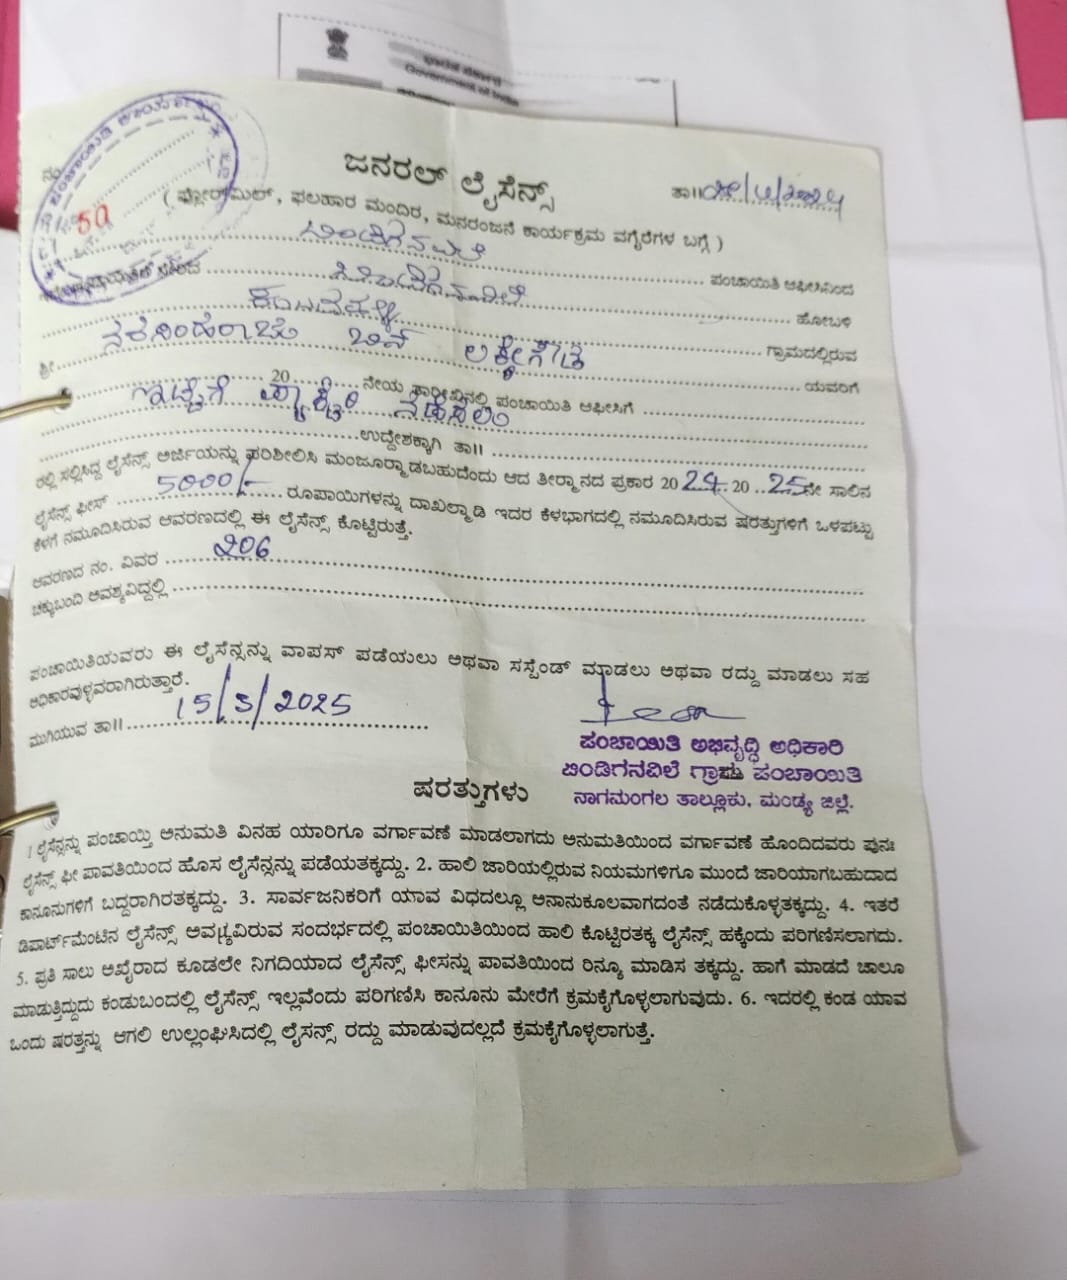 Government of India
ಜನರಲ್ ಲೈಸೆನ್ಸ್
ನಂ. 50
ತಾ॥
( ಫ್ಲೋರ್‌ಮಿಲ್, ಫಲಹಾರ ಮಂದಿರ, ಮನರಂಜನೆ ಕಾರ್ಯಕ್ರಮ ವಗೈರೆಗಳ ಬಗ್ಗೆ )
ಬಿಂಡಿಗನವಿಲೆ ಪಂಚಾಯಿತಿ ಆಫೀಸಿನಿಂದ
ಬಿಂಡಿಗನವಿಲೆ ಹೋಬಳಿ
ಗ್ರಾಮದಲ್ಲಿರುವ
ಶ್ರೀ ಬಿನ್ ಯವರಿಗೆ
20 ನೇಯ ತಾರೀಖಿನಲ್ಲಿ ಪಂಚಾಯಿತಿ ಆಫೀಸಿಗೆ
ಇಟ್ಟಿಗೆ ಪ್ಯಾಕ್ಟರಿ ನಡೆಸಲು
ಉದ್ದೇಶಕ್ಕಾಗಿ ತಾ॥
ರಲ್ಲಿ ಸಲ್ಲಿಸಿದ್ದ ಲೈಸೆನ್ಸ್ ಅರ್ಜಿಯನ್ನು ಪರಿಶೀಲಿಸಿ ಮಂಜೂರ್‍ಮಾಡಬಹುದೆಂದು ಆದ ತೀರ್‍ಮಾನದ ಪ್ರಕಾರ 2024 20 25ನೇ ಸಾಲಿನ
ಲೈಸೆನ್ಸ್ ಫೀಸ್ 5000/- ರೂಪಾಯಿಗಳನ್ನು ದಾಖಲ್ಮಾಡಿ ಇದರ ಕೆಳಭಾಗದಲ್ಲಿ ನಮೂದಿಸಿರುವ ಷರತ್ತುಗಳಿಗೆ ಒಳಪಟ್ಟು
ಕೆಳಗೆ ನಮೂದಿಸಿರುವ ಆವರಣದಲ್ಲಿ ಈ ಲೈಸೆನ್ಸ್ ಕೊಟ್ಟಿರುತ್ತೆ.
ಆವರಣದ ನಂ. ವಿವರ 206
ಚಕ್ಕುಬಂದಿ ಅವಶ್ಯವಿದ್ದಲ್ಲಿ
ಪಂಚಾಯಿತಿಯವರು ಈ ಲೈಸೆನ್ಸನ್ನು ವಾಪಸ್ ಪಡೆಯಲು ಅಥವಾ ಸಸ್ಪೆಂಡ್ ಮಾಡಲು ಅಥವಾ ರದ್ದು ಮಾಡಲು ಸಹ
ಅಧಿಕಾರವುಳ್ಳವರಾಗಿರುತ್ತಾರೆ.
ಮುಗಿಯುವ ತಾ॥ 15/3/2025
ಪಂಚಾಯಿತಿ ಅಭಿವೃದ್ಧಿ ಅಧಿಕಾರಿ
ಬಿಂಡಿಗನವಿಲೆ ಗ್ರಾಮ ಪಂಚಾಯಿತಿ
ನಾಗಮಂಗಲ ತಾಲ್ಲೂಕು. ಮಂಡ್ಯ ಜಿಲ್ಲೆ.
ಷರತ್ತುಗಳು
1 ಲೈಸೆನ್ಸನ್ನು ಪಂಚಾಯ್ತಿ ಅನುಮತಿ ವಿನಹ ಯಾರಿಗೂ ವರ್ಗಾವಣೆ ಮಾಡಲಾಗದು ಅನುಮತಿಯಿಂದ ವರ್ಗಾವಣೆ ಹೊಂದಿದವರು ಪುನಃ
ಲೈಸೆನ್ಸ್ ಫೀ ಪಾವತಿಯಿಂದ ಹೊಸ ಲೈಸೆನ್ಸನ್ನು ಪಡೆಯತಕ್ಕದ್ದು. 2. ಹಾಲಿ ಜಾರಿಯಲ್ಲಿರುವ ನಿಯಮಗಳಿಗೂ ಮುಂದೆ ಜಾರಿಯಾಗಬಹುದಾದ
ಕಾನೂನುಗಳಿಗೆ ಬದ್ದರಾಗಿರತಕ್ಕದ್ದು. 3. ಸಾರ್ವಜನಿಕರಿಗೆ ಯಾವ ವಿಧದಲ್ಲೂ ಅನಾನುಕೂಲವಾಗದಂತೆ ನಡೆದುಕೊಳ್ಳತಕ್ಕದ್ದು. 4. ಇತರೆ
ಡಿಪಾರ್ಟ್‌ಮೆಂಟಿನ ಲೈಸೆನ್ಸ್ ಅವಶ್ಯವಿರುವ ಸಂದರ್ಭದಲ್ಲಿ ಪಂಚಾಯಿತಿಯಿಂದ ಹಾಲಿ ಕೊಟ್ಟಿರತಕ್ಕ ಲೈಸೆನ್ಸ್ ಹಕ್ಕೆಂದು ಪರಿಗಣಿಸಲಾಗದು.
5. ಪ್ರತಿ ಸಾಲು ಅಖೈರಾದ ಕೂಡಲೇ ನಿಗದಿಯಾದ ಲೈಸೆನ್ಸ್ ಫೀಸನ್ನು ಪಾವತಿಯಿಂದ ರಿನ್ಯೂ ಮಾಡಿಸ ತಕ್ಕದ್ದು. ಹಾಗೆ ಮಾಡದೆ ಚಾಲೂ
ಮಾಡುತ್ತಿದ್ದುದು ಕಂಡುಬಂದಲ್ಲಿ ಲೈಸೆನ್ಸ್ ಇಲ್ಲವೆಂದು ಪರಿಗಣಿಸಿ ಕಾನೂನು ಮೇರೆಗೆ ಕ್ರಮಕೈಗೊಳ್ಳಲಾಗುವುದು. 6. ಇದರಲ್ಲಿ ಕಂಡ ಯಾವ
ಒಂದು ಷರತ್ತನ್ನು ಆಗಲಿ ಉಲ್ಲಂಘಿಸಿದಲ್ಲಿ ಲೈಸನ್ಸ್ ರದ್ದು ಮಾಡುವುದಲ್ಲದೆ ಕ್ರಮಕೈಗೊಳ್ಳಲಾಗುತ್ತೆ.